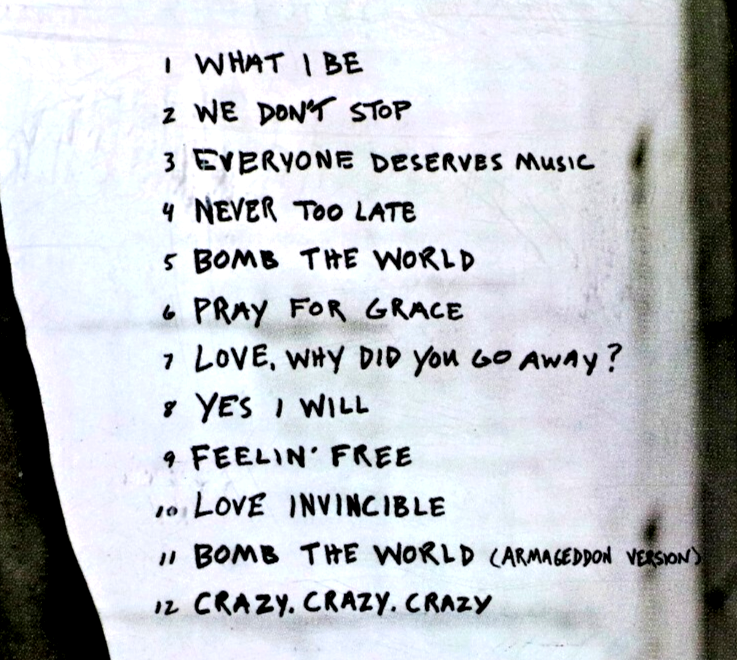 1 WHAT I BE
2 WE DON'T STOP
3 EVERYONE DESERVES MUSIC
4 NEVER TOO LATE
5 BOMB THE WORLD
6 PRAY FOR GRACE
7 LOVE, WHY DID YOU GO AWAY?
8 YES I WILL
9 FEELIN' FREE
10 LOVE INVINCIBLE
11 BOMB THE WORLD (ARMAGEDDON VERSION)
12 CRAZY. CRAZY. CRAZY